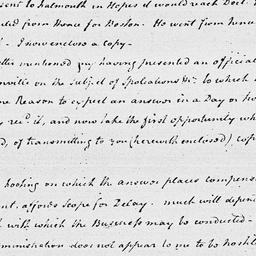 sent to Falmouth in Hopes it would reach
from thence for Boston. He went from hence
I now enclose a copy—
mentioned my having presented an official
on the subject of Spoliations &c. to which
Reason to expect an answer in a Day or
rec.d it, and now take the first opportunity
of transmitting to you (herewith enclosed)
footing on which the answer places
affords scope for Delay. much will
with which the Business may be conducted—
administration does not appear to me to be